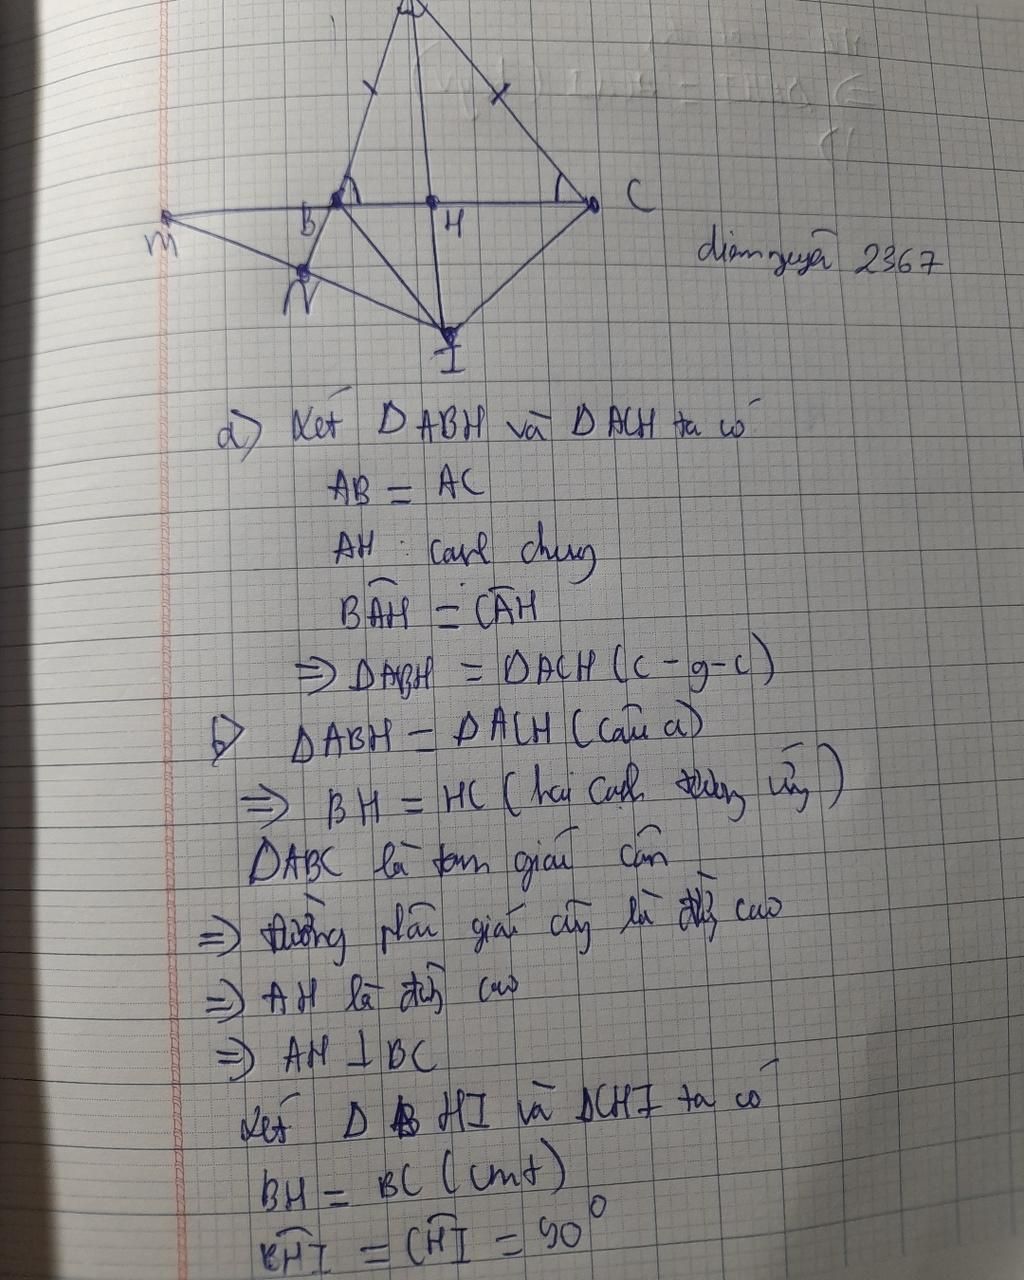 A
B
H
C
M
N
I
diemnguyễn 2367
a) Xét ΔABH và ΔACH ta có
AB = AC
AH : cạnh chung
BAH = CAH
=> ΔABH = ΔACH (c-g-c)
b) ΔABH = ΔACH (câu a)
=> BH = HC (hai cạnh tương ứng)
ΔABC là tam giác cân
=> Đường phân giác cũng là đường cao
=> AH là đường cao
=> AH ⊥ BC
Xét ΔBHI và ΔCHI ta có
BH = BC (cmt)
BHI = CHI = 90°